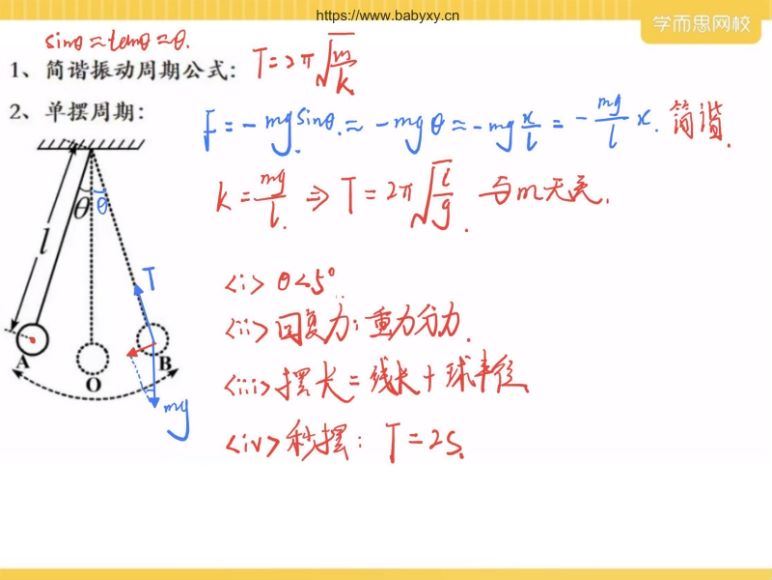 https://www.babyxy.cn
学而思网校
sinθ≈tanθ≈θ.
1、简谐振动周期公式: T=2π√(m/k)
2、单摆周期:
F=-mgsinθ.≈-mgθ≈-mg x/l = -mg/l x. 简谐.
k=mg/l. ⇒ T=2π√(l/g). 与m无关.
θ θ
l
T
<i> θ<5°
<ii> 回复力:重力分力.
A O B
<iii> 摆长=线长+球半径
mg
<iv> 秒摆: T=2s.